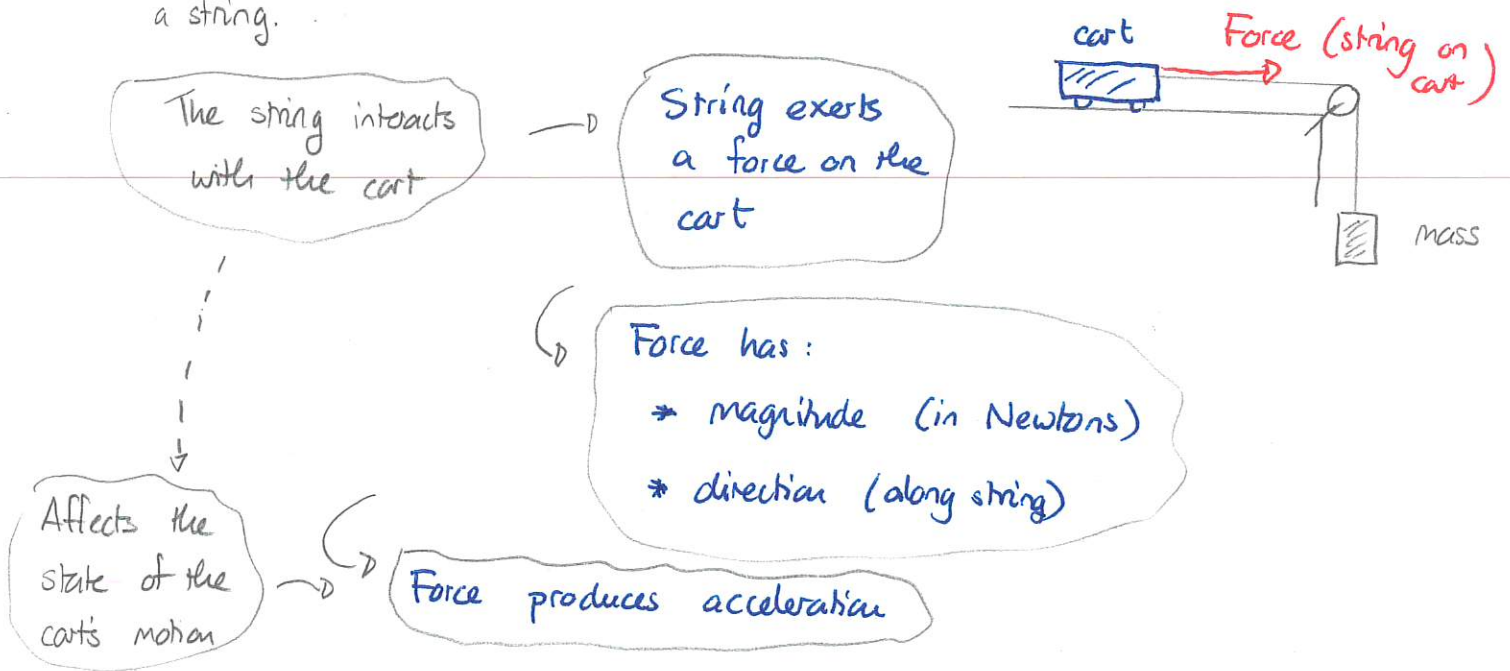 a string.
The string interacts
with the cart
String exerts
a force on the
cart
cart
Force (string on
cart)
mass
Force has:
* magnitude (in Newtons)
* direction (along string)
Affects the
state of the
cart's motion
Force produces acceleration